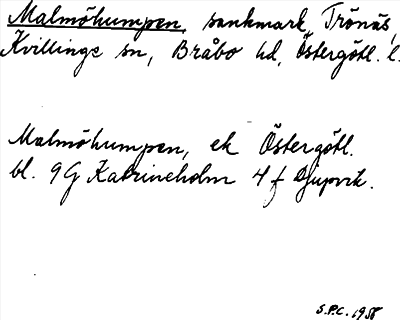 Malmöhumpen, sankmark, Trönäs,
Kvillinge sn, Bråbo hd, Östergötl. l.
Malmöhumpen, ek Östergötl.
bl. 9G Katrineholm 4f Djupvik.
S.P.C. 1958